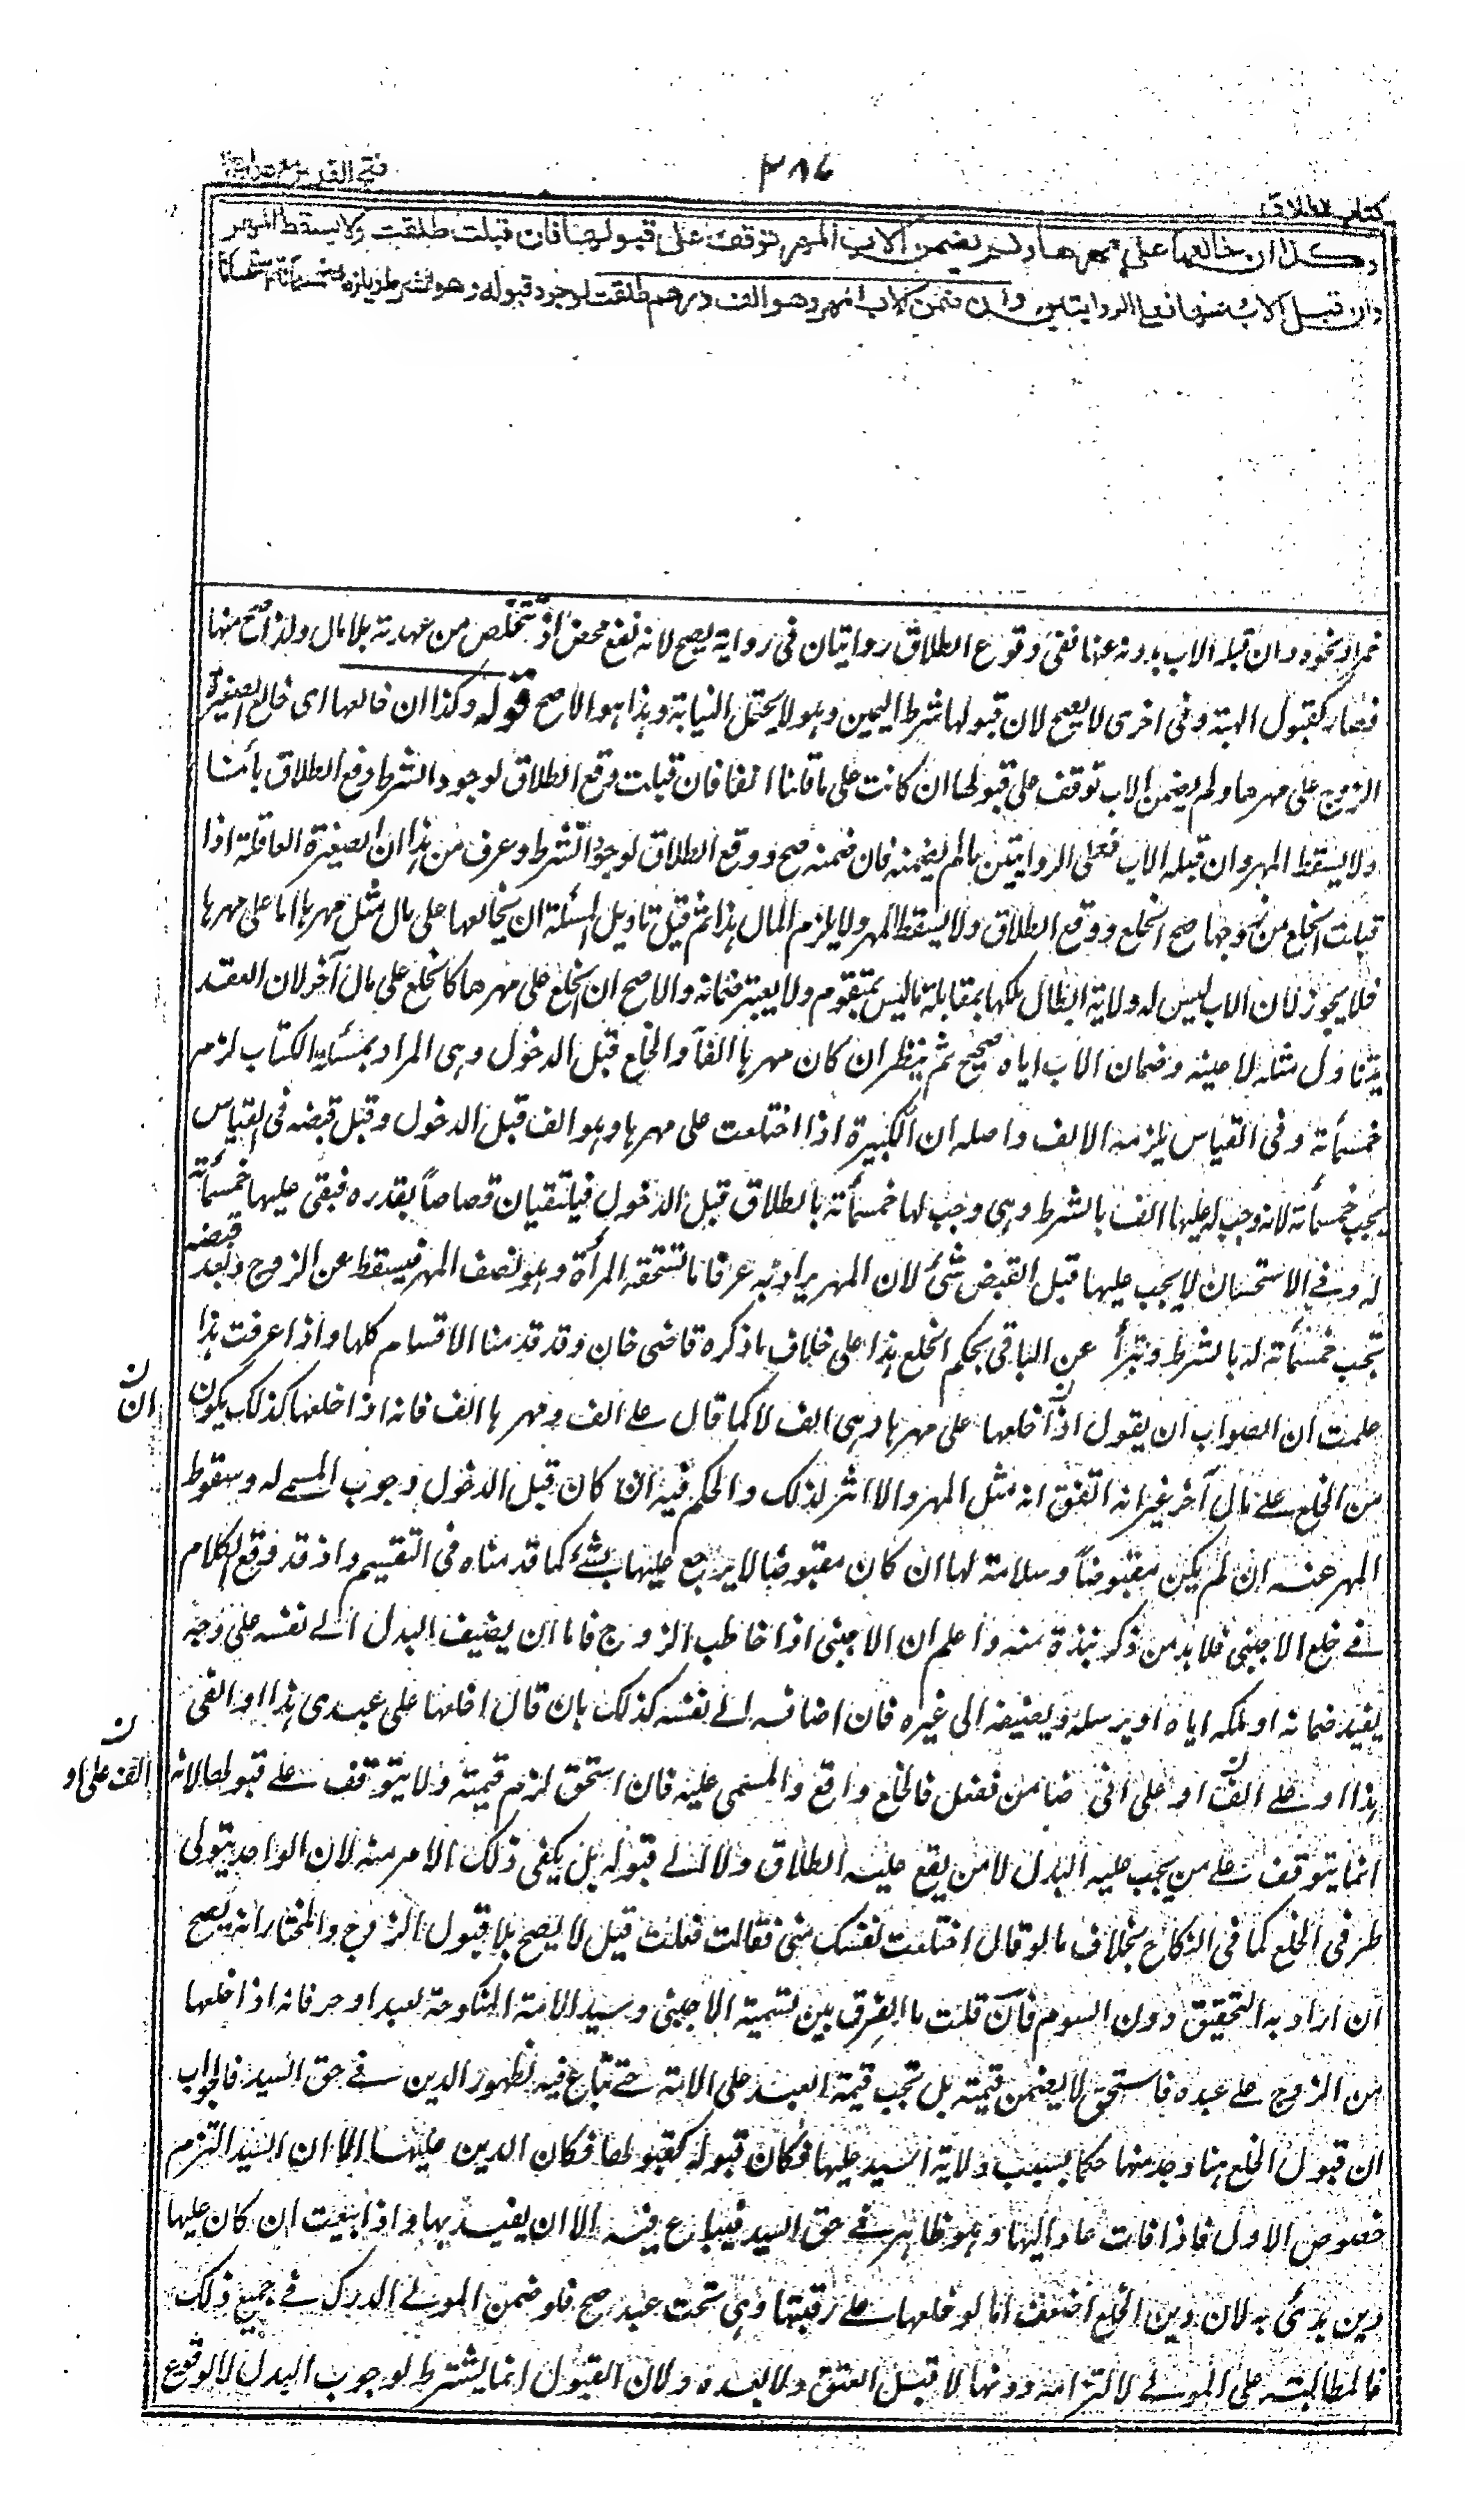 كتاب الطلاق
٣٨٤
فتح القدير مع هداية
وكذا ان خالعها على مهرها ولم يضمن الاب المهر توقف على قبولها فان قبلت طلقت ولا يسقط المهر
وان قبل الاب عنها فعلى الروايتين وان ضمن الاب المهر وهو الف درهم طلقت لوجود قبوله وهو الشرط ويلزمه خمسمائة استحسانا
خمرا ونحوه وان قبله الاب بدونه عنها ففى وقوع الطلاق روايتان فى رواية يصح لانه نفع محض اذ تتخلص من عهدته بلا مال ولذا صح منها
فصار كقبول الهبة وفى اخرى لا يصح لان قبولها شرط اليمين وهو لا يحتمل النيابة وهذا هو الاصح قوله وكذا ان خالعها اى خالع الصغيرة
الزوج على مهرها ولم يضمن الاب توقف على قبولها ان كانت على ما قلنا انفا فان قبلت وقع الطلاق لوجود الشرط وقع الطلاق بائنا
ولا يسقط المهر وان قبله الاب فعلى الروايتين ما لم يضمنه فان ضمنه صح ووقع الطلاق لوجود الشرط وعرف من هذا ان الصغيرة العاقلة اذا
قبلت الخلع من زوجها صح الخلع ووقع الطلاق ولا يسقط المهر ولا يلزم المال هذا ثم قيل تاويل المسئلة ان يخالعها على مال مثل مهرها اما على مهرها
فلا يجوز لان الاب ليس له ولاية ابطال ملكها بمقابلة ما ليس بمتقوم ولا يعتبر ضمانه والاصح ان الخلع على مهرها كالخلع على مال آخر لان العقد
يتناول مثله لا عينه وضمان الاب اياه صحيح ثم ينظر ان كان مهرها الفا والخلع قبل الدخول وهى المراد بمسئلة الكتاب لزمه
خمسمائة وفى القياس يلزمه الالف واصله ان الكبيرة اذا اختلعت على مهرها وهو الف قبل الدخول وقبل قبضه فى القياس
يجب خمسمائة لانه وجب له عليها الف بالشرط وهى وجب لها خمسمائة بالطلاق قبل الدخول فيلتقيان قصاصا بقدره فبقى عليها خمسمائة
له وفى الاستحسان لا يجب عليها قبل القبض شئ لان المهر يراد به عرفا ما تستحقه المرأة وهو نصف المهر فيسقط عن الزوج وبعد قبضه
تجب خمسمائة له بالشرط وتبرأ عن الباقى بحكم الخلع هذا على خلاف ما ذكره قاضى خان وقد قدمنا الاقسام كلها واذا عرفت هذا
علمت ان الصواب ان يقول اذا خلعها على مهرها وهى الف لا كما قال على الف ومهرها الف فانه اذا خلعها كذلك يكون
ن
ان
من الخلع على مال آخر غير انه اتفق انه مثل المهر والا اثر لذلك والحكم فيه ان كان قبل الدخول وجوب المسمى له وسقوط
المهر عنه ان لم يكن مقبوضا وسلامته لها ان كان مقبوضا لا يرجع عليها بشئ كما قدمناه فى التقسيم واذ قد وقع الكلام
فى خلع الاجنبى فلا بد من ذكر نبذة منه واعلم ان الاجنبى اذا خاطب الزوج فاما ان يضيف البدل الى نفسه على وجه
يفيد ضمانه او ملكه اياه او يرسله او يضيفه الى غيره فان اضافه الى نفسه كذلك بان قال اخلعها على عبدى هذا او الفى
هذا او على الف او على انى ضامن ففعل فالخلع واقع والمسمى عليه فان استحق لزمه قيمته ولا يتوقف على قبولها لانه
ن
الف على او
انما يتوقف على من يجب عليه البدل لا من يقع عليه الطلاق ولا الى قبوله بل يكفى ذلك الامر منه لان الواحد يتولى
طرفى الخلع كما فى النكاح بخلاف ما لو قال اختلعت نفسك منى فقالت فعلت قيل لا يصح بلا قبول الزوج والمختار انه يصح
ان اراد به التحقيق دون السوم فان قلت ما الفرق بين تسمية الاجنبى وسيد الامة المنكوحة لعبد او حر فانه اذا خلعها
من الزوج على عبده فاستحق لا يضمن قيمته بل تجب قيمة العبد على الامة حتى تباع فيه لظهور الدين فى حق السيد فالجواب
ان قبول الخلع هنا وجد منها حكما بسبب ولاية السيد عليها فكان قبوله كقبولها فكان الدين عليها الا ان السيد التزم
خصوص الاول فاذا فات عاد اليها وهو ظاهر فى حق السيد فيباع فيه الا ان يفديها واذا بيعت ان كان عليها
دين بدئ به لان دين الخلع اضعف اما لو خلعها على رقبتها وهى تحت عبد صح فلو ضمن المولى الدرك فى جميع ذلك
فالمطالبة على المولى لالتزامه دونها لا قبل العتق ولا بعده ولان القبول انما يشترط لوجوب البدل لا لوقوع